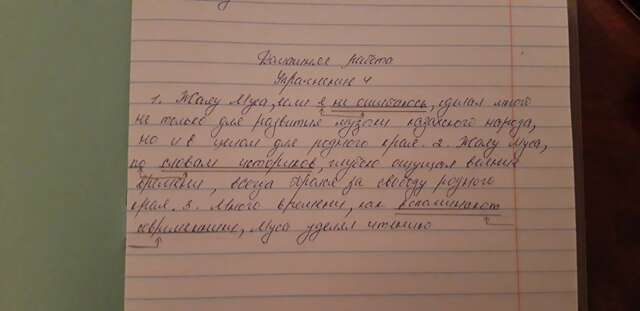 Домашняя работа
Упражнение 4
1. Жаяу Муса, если я не ошибаюсь, сделал много
не только для развития музыки казахского народа,
но и в целом для родного края. 2. Жаяу Муса,
по словам историков, глубоко ощущая веяние
времени, всегда дрался за свободу родного
края. 3. Много времени, как вспоминают
современники, Муса уделял чтению